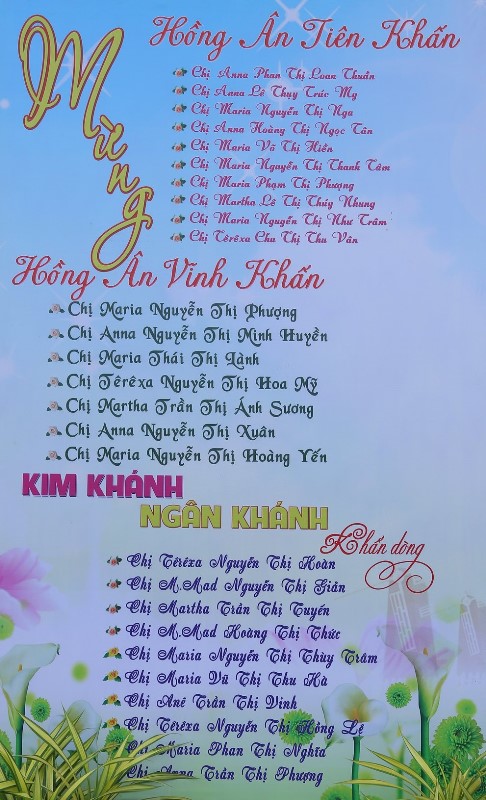 Mừng
Hồng Ân Tiên Khấn
Chị Anna Phan Thị Loan Thuần
Chị Anna Lê Thụy Trúc My
Chị Maria Nguyễn Thị Nga
Chị Anna Hoàng Thị Ngọc Tân
Chị Maria Võ Thị Hiền
Chị Maria Nguyễn Thị Thanh Tâm
Chị Maria Phạm Thị Phượng
Chị Martha Lê Thị Thúy Nhung
Chị Maria Nguyễn Thị Như Trâm
Chị Têrêxa Chu Thị Thu Vân
Hồng Ân Vĩnh Khấn
Chị Maria Nguyễn Thị Phượng
Chị Anna Nguyễn Thị Minh Huyền
Chị Maria Thái Thị Lành
Chị Têrêxa Nguyễn Thị Hoa Mỹ
Chị Martha Trần Thị Ánh Sương
Chị Anna Nguyễn Thị Xuân
Chị Maria Nguyễn Thị Hoàng Yến
KIM KHÁNH
NGÂN KHÁNH
Khấn dòng
Chị Têrêxa Nguyễn Thị Hoàn
Chị M.Mad Nguyễn Thị Giản
Chị Martha Trần Thị Tuyến
Chị M.Mad Hoàng Thị Thức
Chị Maria Nguyễn Thị Thùy Trâm
Chị Maria Vũ Thị Thu Hà
Chị Anê Trần Thị Vinh
Chị Têrêxa Nguyễn Thị Hồng Lê
Chị Maria Phan Thị Nghĩa
Chị Anna Trần Thị Phượng